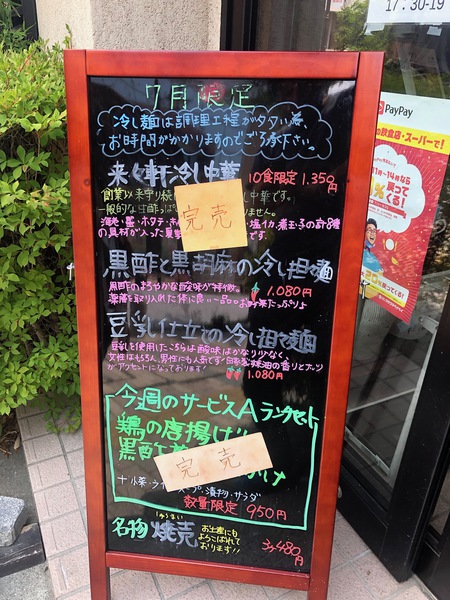 17:30-19
PayPay
の飲食店・スーパーで!
戻って
くる!
7月限定
冷し麺は調理工程が多タい為
お時間がかかりますのでご了承下さい。
来々軒冷し中華 10食限定 1.350円
創業以来守り続 し中華です。
一般的な生酢っぱ りません。
海老・蟹・ホタテ・ ・塩イカ、煮玉子の計8種
の具材が入った です。
完売
黒酢と黒胡麻の冷し担々麺
黒酢のまろやかな酸味が特徴。 1.080円
豆乳仕立ての冷し担々麺
豆乳を使用したこちらは酸味はかなり少なく、
女性はもちろん男性にも人気です!自家製辣油の香りとナッツ
がアクセントになっております! 1.080円
今週のサービスAランチセット
鶏の唐揚げ
黒酢 け
完売
+小菜・ライ スープ、漬物・サラダ
数量限定 950円
名物 焼売 お土産にも
よろこばれて
おります!! 3ヶ480円